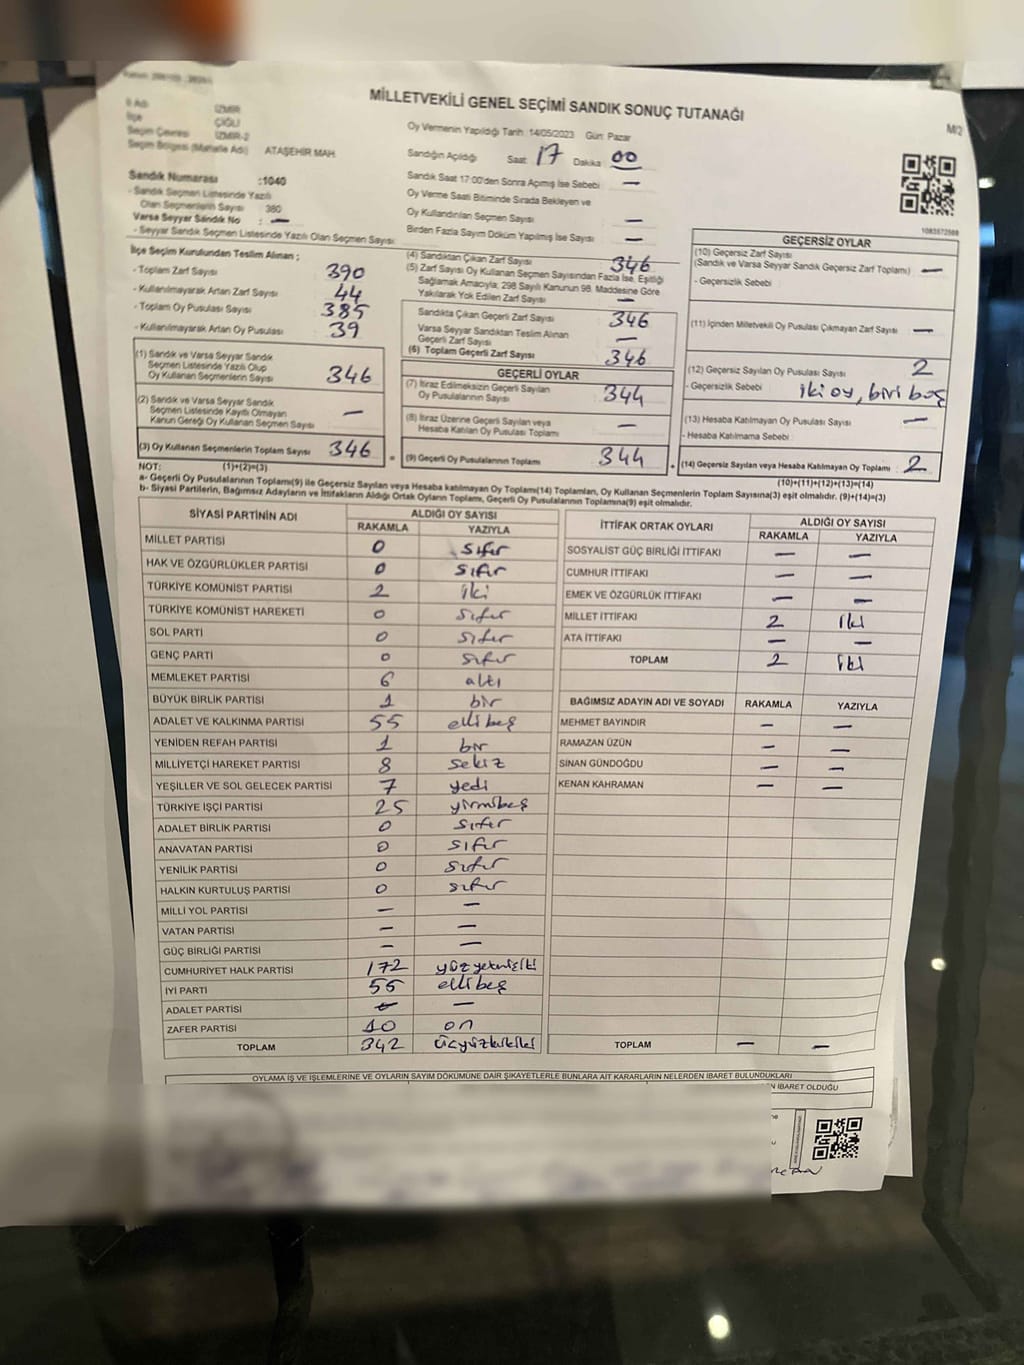 MİLLETVEKİLİ GENEL SEÇİMİ SANDIK SONUÇ TUTANAĞI
M/2
İl Adı İZMİR
İlçe ÇİĞLİ
Seçim Çevresi İZMİR-2
Seçim Bölgesi (Mahalle Adı) ATAŞEHİR MAH.
Sandık Numarası :1040
- Sandık Seçmen Listesinde Yazılı
Olan Seçmenlerin Sayısı 380
Varsa Seyyar Sandık No : —
- Seyyar Sandık Seçmen Listesinde Yazılı Olan Seçmen Sayısı
Oy Vermenin Yapıldığı Tarih 14/05/2023 Gün: Pazar
Sandığın Açıldığı Saat 17 Dakika 00
Sandık Saat 17:00'den Sonra Açımış İse Sebebi —
Oy Verme Saati Bitiminde Sırada Bekleyen ve
Oy Kullandırılan Seçmen Sayısı —
Birden Fazla Sayım Döküm Yapılmış İse Sayısı —
1083572588
İlçe Seçim Kurulundan Teslim Alınan ;
- Toplam Zarf Sayısı 390
- Kullanılmayarak Artan Zarf Sayısı 44
- Toplam Oy Pusulası Sayısı 385
- Kullanılmayarak Artan Oy Pusulası 39
(1) Sandık ve Varsa Seyyar Sandık
Seçmen Listesinde Yazılı Olup
Oy Kullanan Seçmenlerin Sayısı 346
(2) Sandık ve Varsa Seyyar Sandık
Seçmen Listesinde Kayıtlı Olmayan
Kanun Gereği Oy Kullanan Seçmen Sayısı —
(3) Oy Kullanan Seçmenlerin Toplam Sayısı 346 =
(4) Sandıktan Çıkan Zarf Sayısı 346
(5) Zarf Sayısı Oy Kullanan Seçmen Sayısından Fazla İse, Eşitliği
Sağlamak Amacıyla; 298 Sayılı Kanunun 98. Maddesine Göre
Yakılarak Yok Edilen Zarf Sayısı —
Sandıkta Çıkan Geçerli Zarf Sayısı 346
Varsa Seyyar Sandıktan Teslim Alınan
Geçerli Zarf Sayısı —
(6) Toplam Geçerli Zarf Sayısı 346
GEÇERLİ OYLAR
(7) İtiraz Edilmeksizin Geçerli Sayılan
Oy Pusulalarının Sayısı 344
(8) İtiraz Üzerine Geçerli Sayılan veya
Hesaba Katılan Oy Pusulası Toplamı —
(9) Geçerli Oy Pusulalarının Toplamı 344 +
GEÇERSİZ OYLAR
(10) Geçersiz Zarf Sayısı
(Sandık ve Varsa Seyyar Sandık Geçersiz Zarf Toplamı) —
- Geçersizlik Sebebi
(11) İçinden Milletvekili Oy Pusulası Çıkmayan Zarf Sayısı —
(12) Geçersiz Sayılan Oy Pusulası Sayısı 2
- Geçersizlik Sebebi iki oy, biri boş
(13) Hesaba Katılmayan Oy Pusulası Sayısı —
- Hesaba Katılmama Sebebi
(14) Geçersiz Sayılan veya Hesaba Katılmayan Oy Toplamı 2
NOT: (1)+(2)=(3) (10)+(11)+(12)+(13)=(14)
a- Geçerli Oy Pusulalarının Toplamı(9) ile Geçersiz Sayılan veya Hesaba katılmayan Oy Toplamı(14) Toplamları, Oy Kullanan Seçmenlerin Toplam Sayısına(3) eşit olmalıdır. (9)+(14)=(3)
b- Siyasi Partilerin, Bağımsız Adayların ve İttifakların Aldığı Ortak Oyların Toplamı, Geçerli Oy Pusulalarının Toplamına(9) eşit olmalıdır.
SİYASİ PARTİNİN ADI ALDIĞI OY SAYISI
RAKAMLA YAZIYLA
MİLLET PARTİSİ 0 sıfır
HAK VE ÖZGÜRLÜKLER PARTİSİ 0 sıfır
TÜRKİYE KOMÜNİST PARTİSİ 2 iki
TÜRKİYE KOMÜNİST HAREKETİ 0 sıfır
SOL PARTİ 0 sıfır
GENÇ PARTİ 0 sıfır
MEMLEKET PARTİSİ 6 altı
BÜYÜK BİRLİK PARTİSİ 1 bir
ADALET VE KALKINMA PARTİSİ 55 elli beş
YENİDEN REFAH PARTİSİ 1 bir
MİLLİYETÇİ HAREKET PARTİSİ 8 sekiz
YEŞİLLER VE SOL GELECEK PARTİSİ 7 yedi
TÜRKİYE İŞÇİ PARTİSİ 25 yirmibeş
ADALET BİRLİK PARTİSİ 0 sıfır
ANAVATAN PARTİSİ 0 sıfır
YENİLİK PARTİSİ 0 sıfır
HALKIN KURTULUŞ PARTİSİ 0 sıfır
MİLLİ YOL PARTİSİ — —
VATAN PARTİSİ — —
GÜÇ BİRLİĞİ PARTİSİ — —
CUMHURİYET HALK PARTİSİ 172 yüz yetmişiki
İYİ PARTİ 55 elli beş
ADALET PARTİSİ — —
ZAFER PARTİSİ 10 on
TOPLAM 342 üçyüzkırkiki
İTTİFAK ORTAK OYLARI ALDIĞI OY SAYISI
RAKAMLA YAZIYLA
SOSYALİST GÜÇ BİRLİĞİ İTTİFAKI — —
CUMHUR İTTİFAKI — —
EMEK VE ÖZGÜRLÜK İTTİFAKI — —
MİLLET İTTİFAKI 2 iki
ATA İTTİFAKI — —
TOPLAM 2 iki
BAĞIMSIZ ADAYIN ADI VE SOYADI RAKAMLA YAZIYLA
MEHMET BAYINDIR — —
RAMAZAN ÜZÜN — —
SİNAN GÜNDOĞDU — —
KENAN KAHRAMAN — —
TOPLAM — —
OYLAMA İŞ VE İŞLEMLERİNE VE OYLARIN SAYIM DÖKÜMÜNE DAİR ŞİKAYETLERLE BUNLARA AİT KARARLARIN NELERDEN İBARET BULUNDUKLARI
N İBARET OLDUĞU